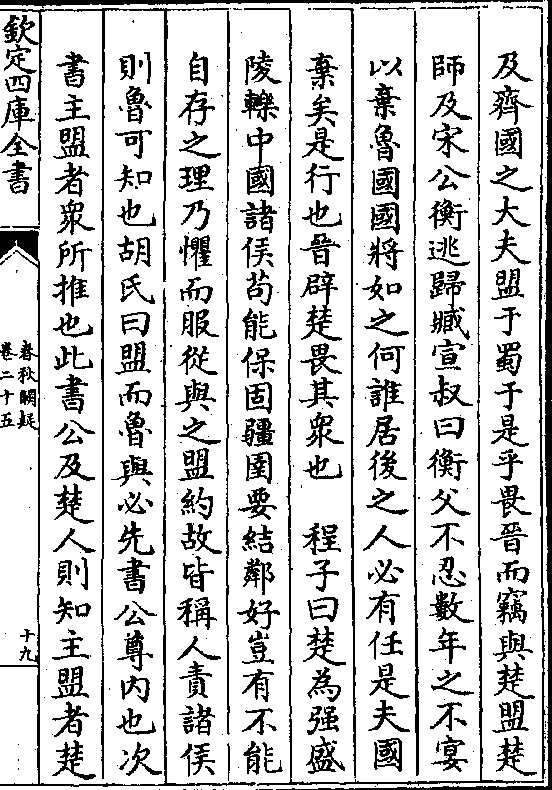 及齊國之大夫盟于蜀于是乎畏晉而竊與楚盟楚
師及宋公衡逃歸臧宣叔曰衡父不忍數年之不宴
以棄魯國國將如之何誰居後之人必有任是夫國
棄矣是行也晉辟楚畏其衆也　程子曰楚為强盛
陵轢中國諸侯苟能保固疆圉要結鄰好豈有不能
自存之理乃懼而服從與之盟約故皆稱人責諸侯
則魯可知也胡氏曰盟而魯與必先書公尊内也次
書主盟者衆所推也此書公及楚人則知主盟者楚
欽定四庫全書
春秋闕疑
卷二十五
十九